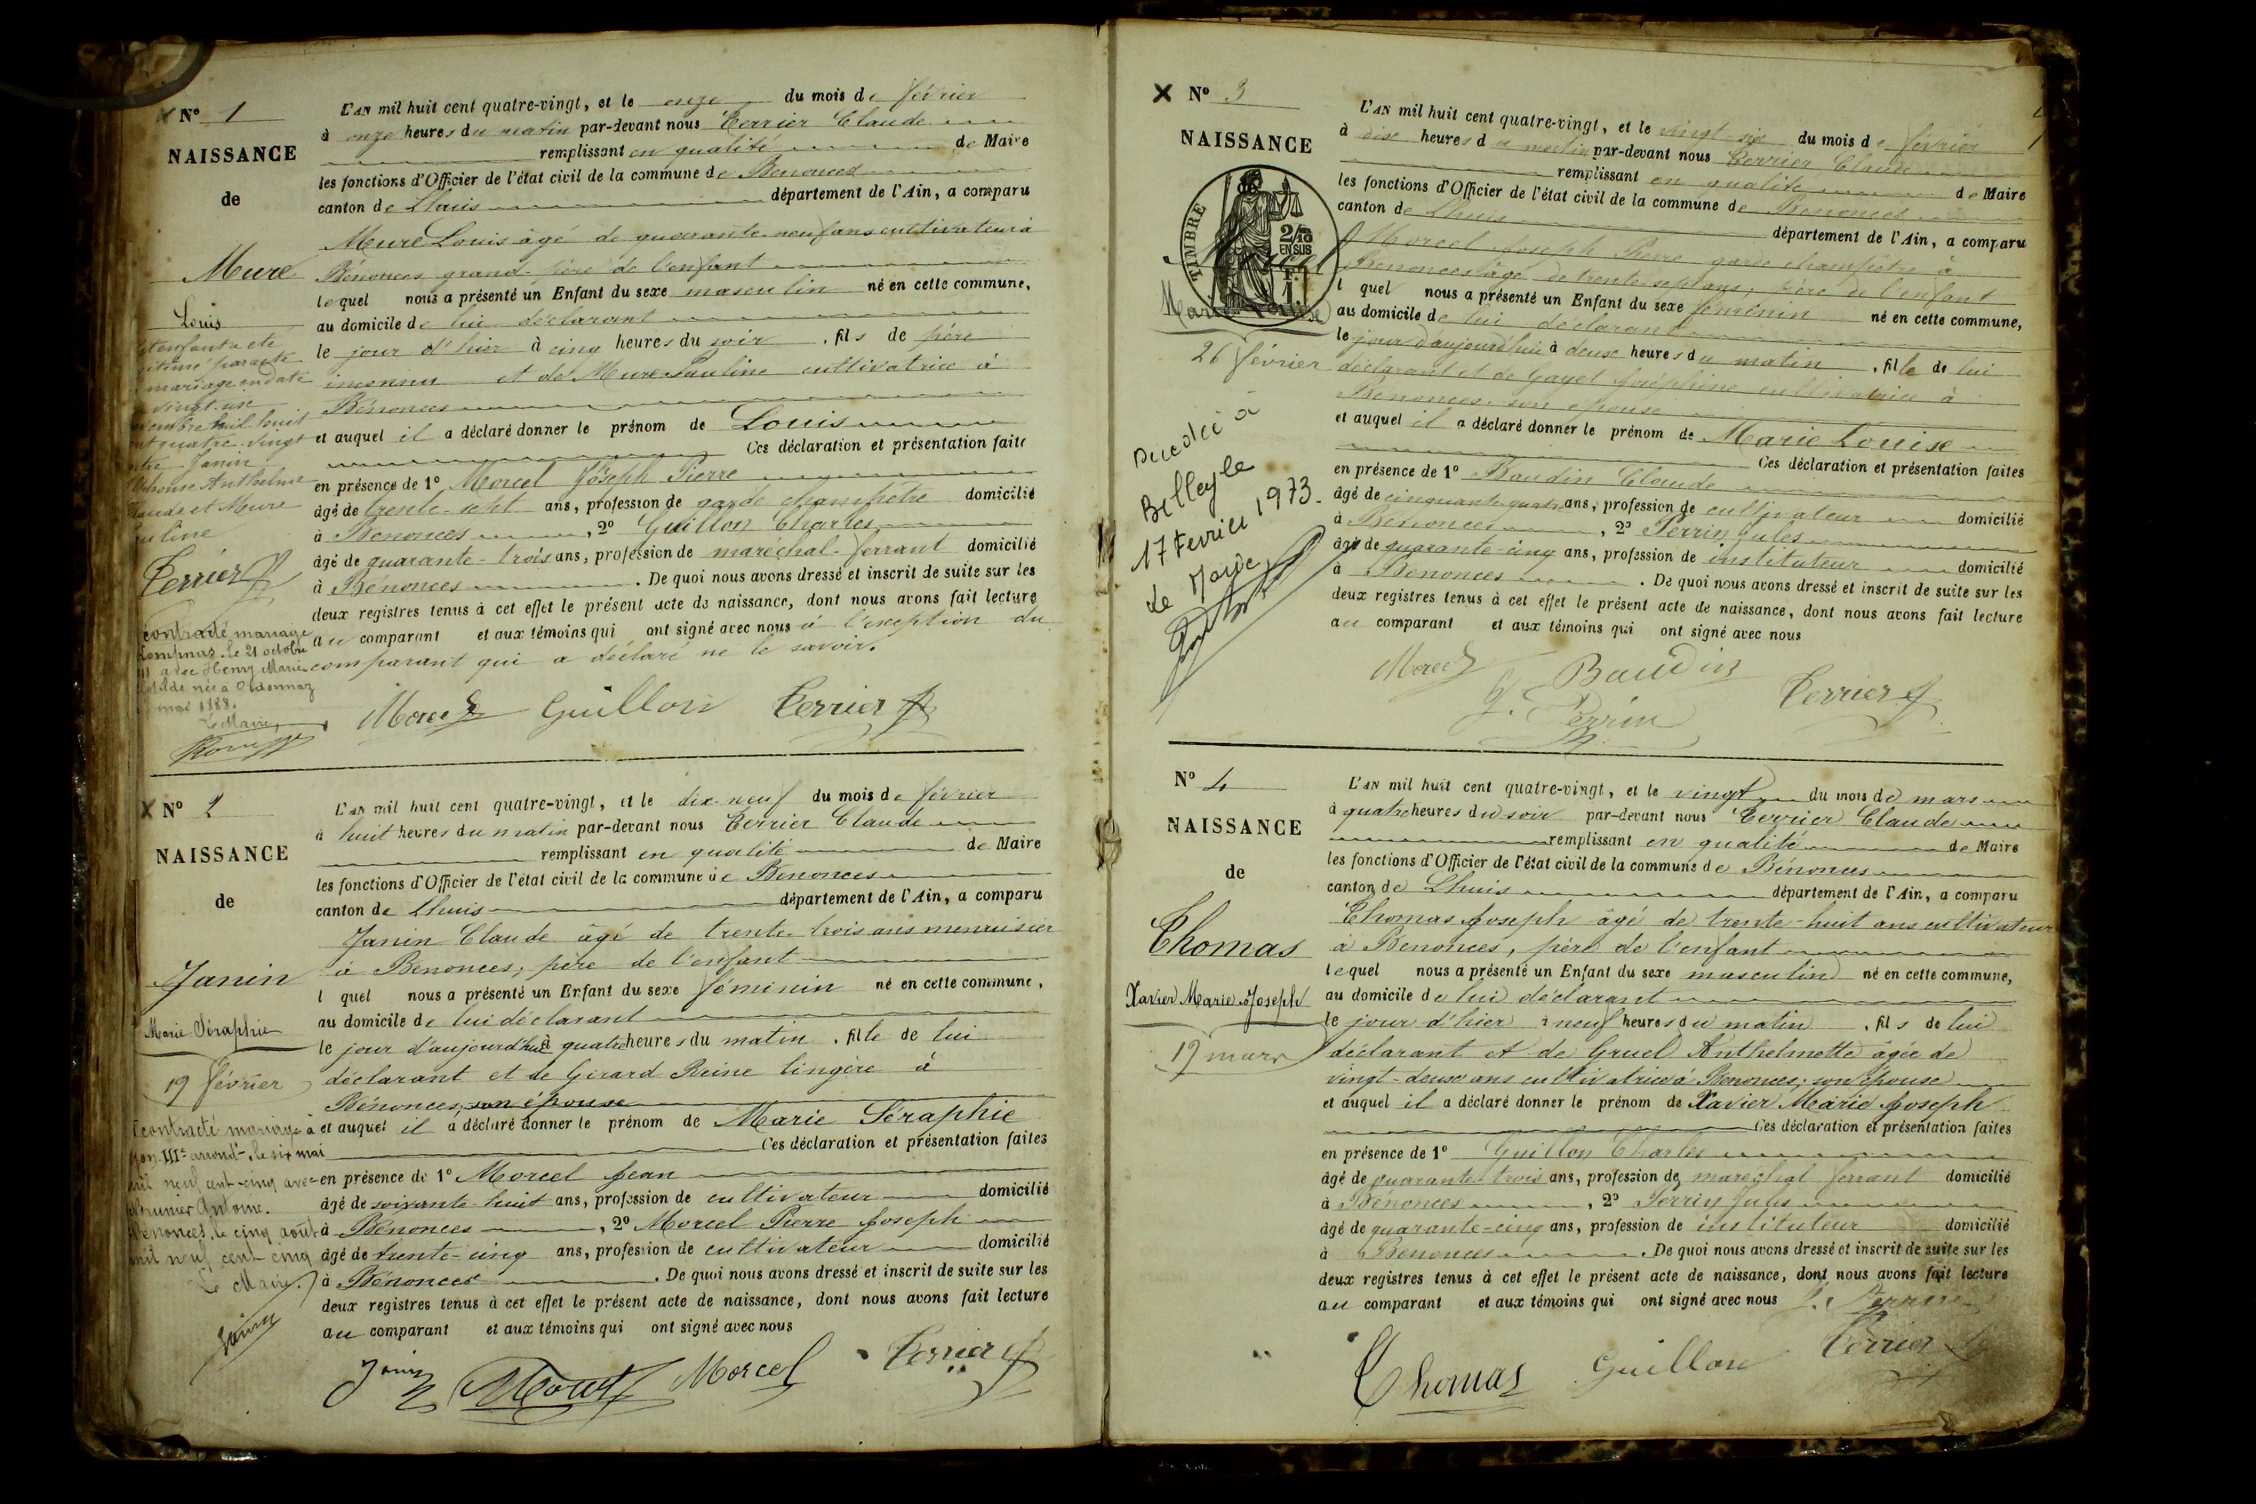 N° 1
NAISSANCE
de
Mure
Louis
L'AN mil huit cent quatre-vingt, et le onze du mois de février
à onze heures du matin par-devant nous Perrier Claude
remplissant en qualité de Maire
les fonctions d'Officier de l'état civil de la commune de Bénonces
canton de Lhuis département de l'Ain, a comparu
Mure Louis âgé de quarante-neuf ans cultivateur à
Bénonces grand-père de l'enfant
lequel nous a présenté un Enfant du sexe masculin né en cette commune,
au domicile de lui déclarant
le jour d'hier à cinq heures du soir, fils de père
inconnu et de Mure Pauline cultivatrice à
Bénonces
et auquel il a déclaré donner le prénom de Louis
Ces déclaration et présentation faite
en présence de 1° Morcel Joseph Pierre
âgé de trente-sept ans, profession de garde champêtre domicilié
à Bénonces, 2° Guillon Charles
âgé de quarante-trois ans, profession de maréchal-ferrant domicilié
à Bénonces. De quoi nous avons dressé et inscrit de suite sur les
deux registres tenus à cet effet le présent acte de naissance, dont nous avons fait lecture
au comparant et aux témoins qui ont signé avec nous à l'exception du
comparant qui a déclaré ne le savoir.
enfant a été
mariage en date
vingt-six
huit
quatre-vingt
Janin
Anthelme
Claude et Mure
Perrier
contracté mariage
le 21 octobre
avec Henry Marie
née à Ordonnaz
mai 1888.
Le Maire
Morcel Guillon Perrier
N° 2
NAISSANCE
de
Janin
Marie Séraphie
19 février
L'AN mil huit cent quatre-vingt, et le dix-neuf du mois de février
à huit heures du matin par-devant nous Perrier Claude
remplissant en qualité de Maire
les fonctions d'Officier de l'état civil de la commune de Bénonces
canton de Lhuis département de l'Ain, a comparu
Janin Claude âgé de trente-trois ans menuisier
à Bénonces, père de l'enfant
l quel nous a présenté un Enfant du sexe féminin né en cette commune,
au domicile de lui déclarant
le jour d'aujourd'hui à quatre heures du matin, fille de lui
déclarant et de Girard Reine lingère à
Bénonces, son épouse
et auquel il a déclaré donner le prénom de Marie Séraphie
Ces déclaration et présentation faites
en présence de 1° Morcel Jean
âgé de soixante-huit ans, profession de cultivateur domicilié
à Bénonces, 2° Morcel Pierre Joseph
âgé de trente-cinq ans, profession de cultivateur domicilié
à Bénonces. De quoi nous avons dressé et inscrit de suite sur les
deux registres tenus à cet effet le présent acte de naissance, dont nous avons fait lecture
au comparant et aux témoins qui ont signé avec nous
contracté mariage à
IIIe arrondt, le six mai
mil neuf cent-cinq avec
Antoine.
Bénonces, le cinq août
mil neuf cent cinq
Le Maire
Morcel Perrier
N° 3
NAISSANCE
TIMBRE
2/10
EN SUS
Marie Louise
26 février
L'AN mil huit cent quatre-vingt, et le vingt-six du mois de février
à dix heures du matin par-devant nous Perrier Claude
remplissant en qualité de Maire
les fonctions d'Officier de l'état civil de la commune de Bénonces
canton de Lhuis département de l'Ain, a comparu
Morcel Joseph Pierre garde champêtre à
Bénonces âgé de trente-sept ans, père de l'enfant
l quel nous a présenté un Enfant du sexe féminin né en cette commune,
au domicile de lui déclarant
le jour d'aujourd'hui à deux heures du matin, fille de lui
déclarant et de Gayet Joséphine cultivatrice à
Bénonces, son épouse
et auquel il a déclaré donner le prénom de Marie Louise
Ces déclaration et présentation faites
en présence de 1° Baudin Claude
âgé de cinquante-quatre ans, profession de cultivateur domicilié
à Bénonces, 2° Perrin Jules
âgé de quarante-cinq ans, profession de instituteur domicilié
à Bénonces. De quoi nous avons dressé et inscrit de suite sur les
deux registres tenus à cet effet le présent acte de naissance, dont nous avons fait lecture
au comparant et aux témoins qui ont signé avec nous
Décédée à
Belley le
17 Février 1973.
Le Maire
Morcel Baudin
J. Perrin Perrier
N° 4
NAISSANCE
de
Thomas
Xavier Marie Joseph
19 mars
L'AN mil huit cent quatre-vingt, et le vingt du mois de mars
à quatre heures du soir par-devant nous Perrier Claude
remplissant en qualité de Maire
les fonctions d'Officier de l'état civil de la commune de Bénonces
canton de Lhuis département de l'Ain, a comparu
Thomas Joseph âgé de trente-huit ans cultivateur
à Bénonces, père de l'enfant
lequel nous a présenté un Enfant du sexe masculin né en cette commune,
au domicile de lui déclarant
le jour d'hier à neuf heures du matin, fils de lui
déclarant et de Gruel Anthelmette âgée de
vingt-deux ans cultivatrice à Bénonces, son épouse
et auquel il a déclaré donner le prénom de Xavier Marie Joseph
Ces déclaration et présentation faites
en présence de 1° Guillon Charles
âgé de quarante-trois ans, profession de maréchal ferrant domicilié
à Bénonces, 2° Perrin Jules
âgé de quarante-cinq ans, profession de instituteur domicilié
à Bénonces. De quoi nous avons dressé et inscrit de suite sur les
deux registres tenus à cet effet le présent acte de naissance, dont nous avons fait lecture
au comparant et aux témoins qui ont signé avec nous J. Perrin
Thomas Guillon Perrier